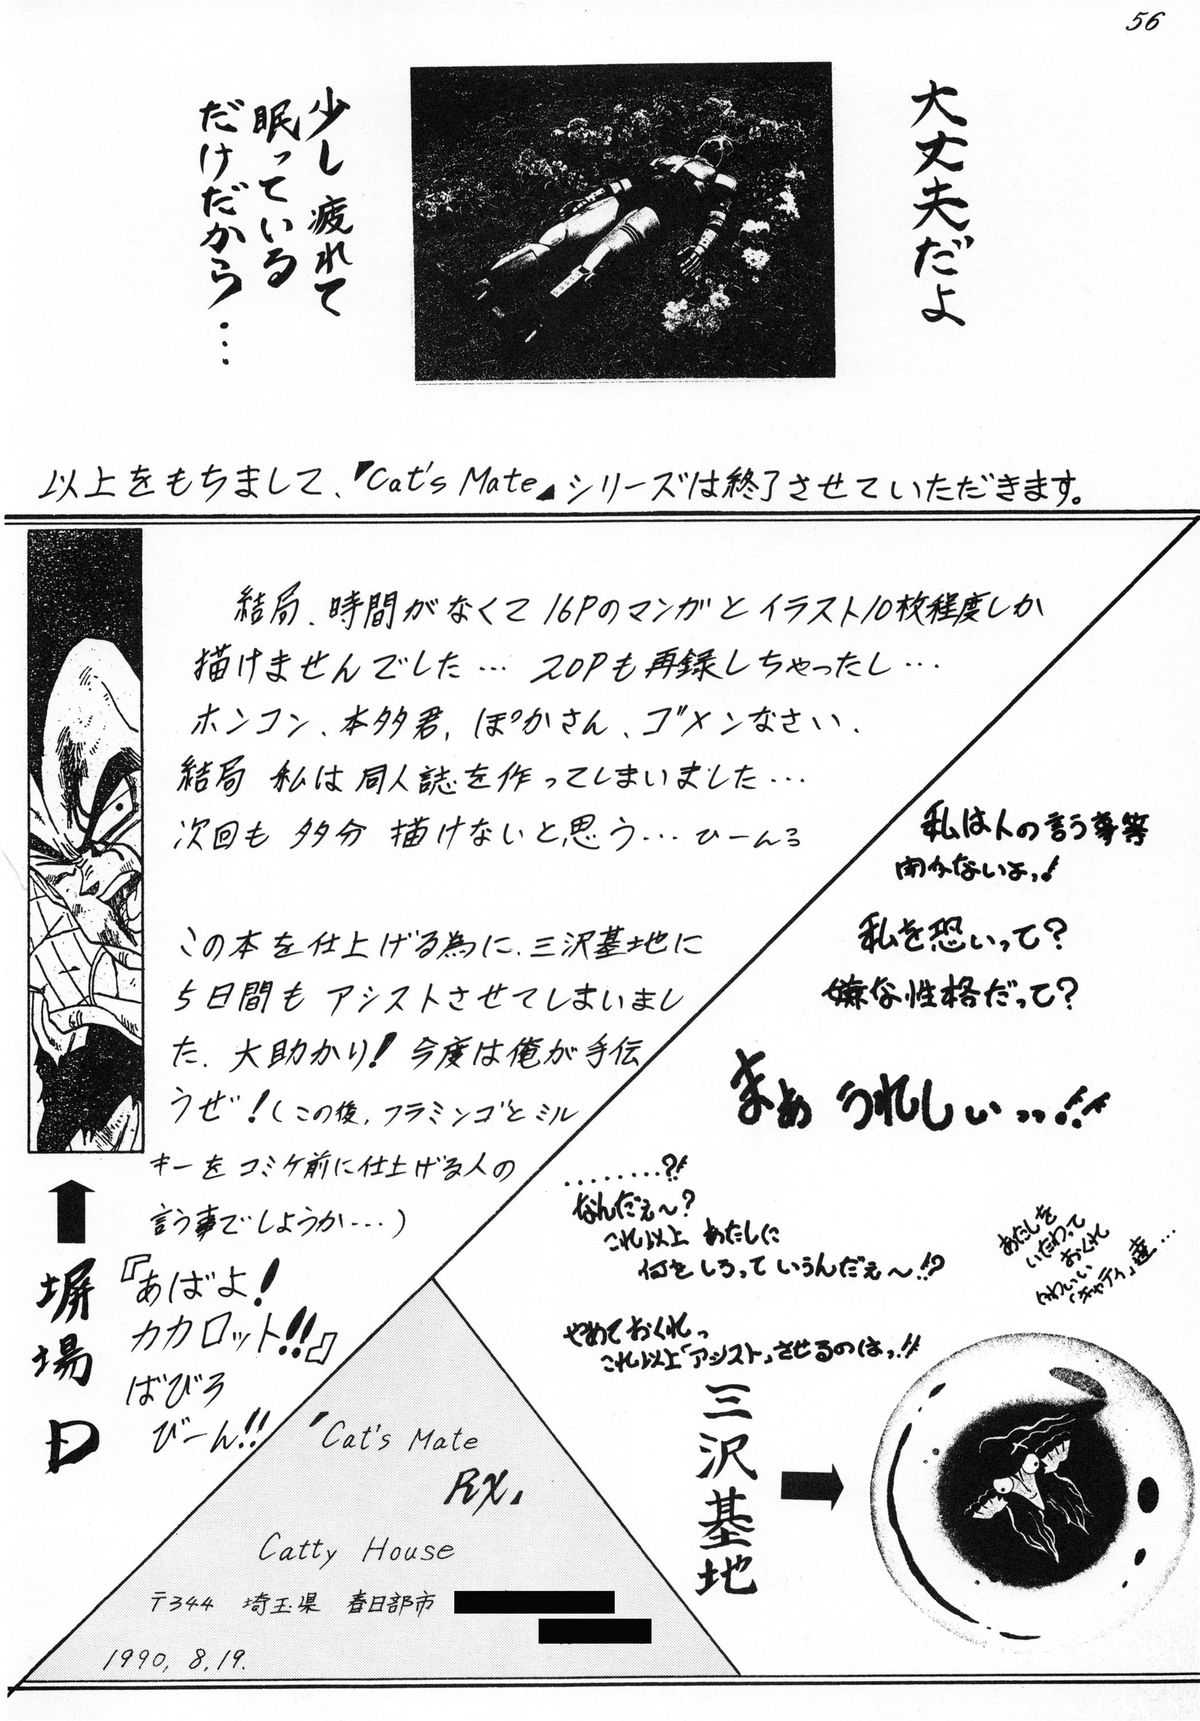 56
大丈夫だよ
少し疲れて
眠っている
だけだから…
以上をもちまして、『Cat's Mate』シリーズは終了させていただきます。
結局、時間がなくて16Pのマンガとイラスト10枚程度しか
描けませんでした… 20Pも再録しちゃったし…
ホンコン、本多君、ぽかさん、ゴメンなさい、
結局 私は同人誌を作ってしまいました…
次回も 多分 描けないと思う… ひーんろ
この本を仕上げる為に、三沢基地に
5日間も アシストさせてしまいまし
た、大助かり! 今度は俺が手伝
うぜ!(この後、フラミンゴとミル
キーをコミケ前に仕上げる人の
言う事でしようか…)
『あばよ!
カカロット!!』
ばびろ
びーん!!
塀場D
私は人の言う事等
聞かないよっ!
私を恐いって?
嫌な性格だって?
まぁ うれしぃっっ!!
........?!
なんだぇ〜?
これ以上 あたしに
何をしろって いうんだぇ〜!?
あたしを
いたわって
おくれ
かわいい
「キャティ」達…
やめておくれっ
これ以上「アシスト」させるのはっ!!
三沢基地
『Cat's Mate
RX』
Catty House
〒344 埼玉県 春日部市
1990, 8, 19.